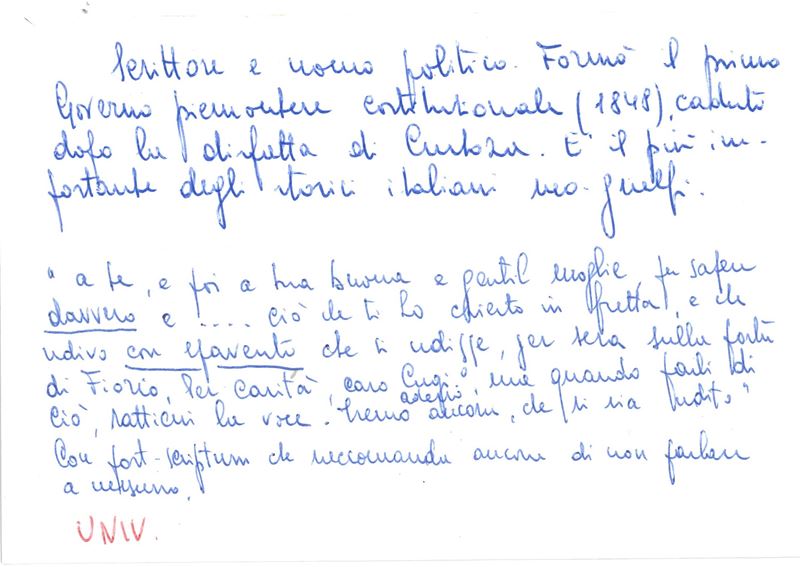 Scrittore e uomo politico. Formò il primo
Governo piemontese costituzionale (1848), caduto
dopo la disfatta di Custoza. E' il più im-
portante degli storici italiani neo-guelfi.
" a te, e poi a tua buona e gentil moglie, per sapere
davvero e .... ciò che ti ho chiesto in fretta, e che
udivo con spavento che si udisse, ier sera sulla porta
di Fiorio. Per carità, caro Cugi°, ma quando parli di
ciò, rattieni la voce. Tremo adesso ancora, che si sia udito"
Con post-scriptum che raccomanda ancora di non parlare
a nessuno.
UNIV.